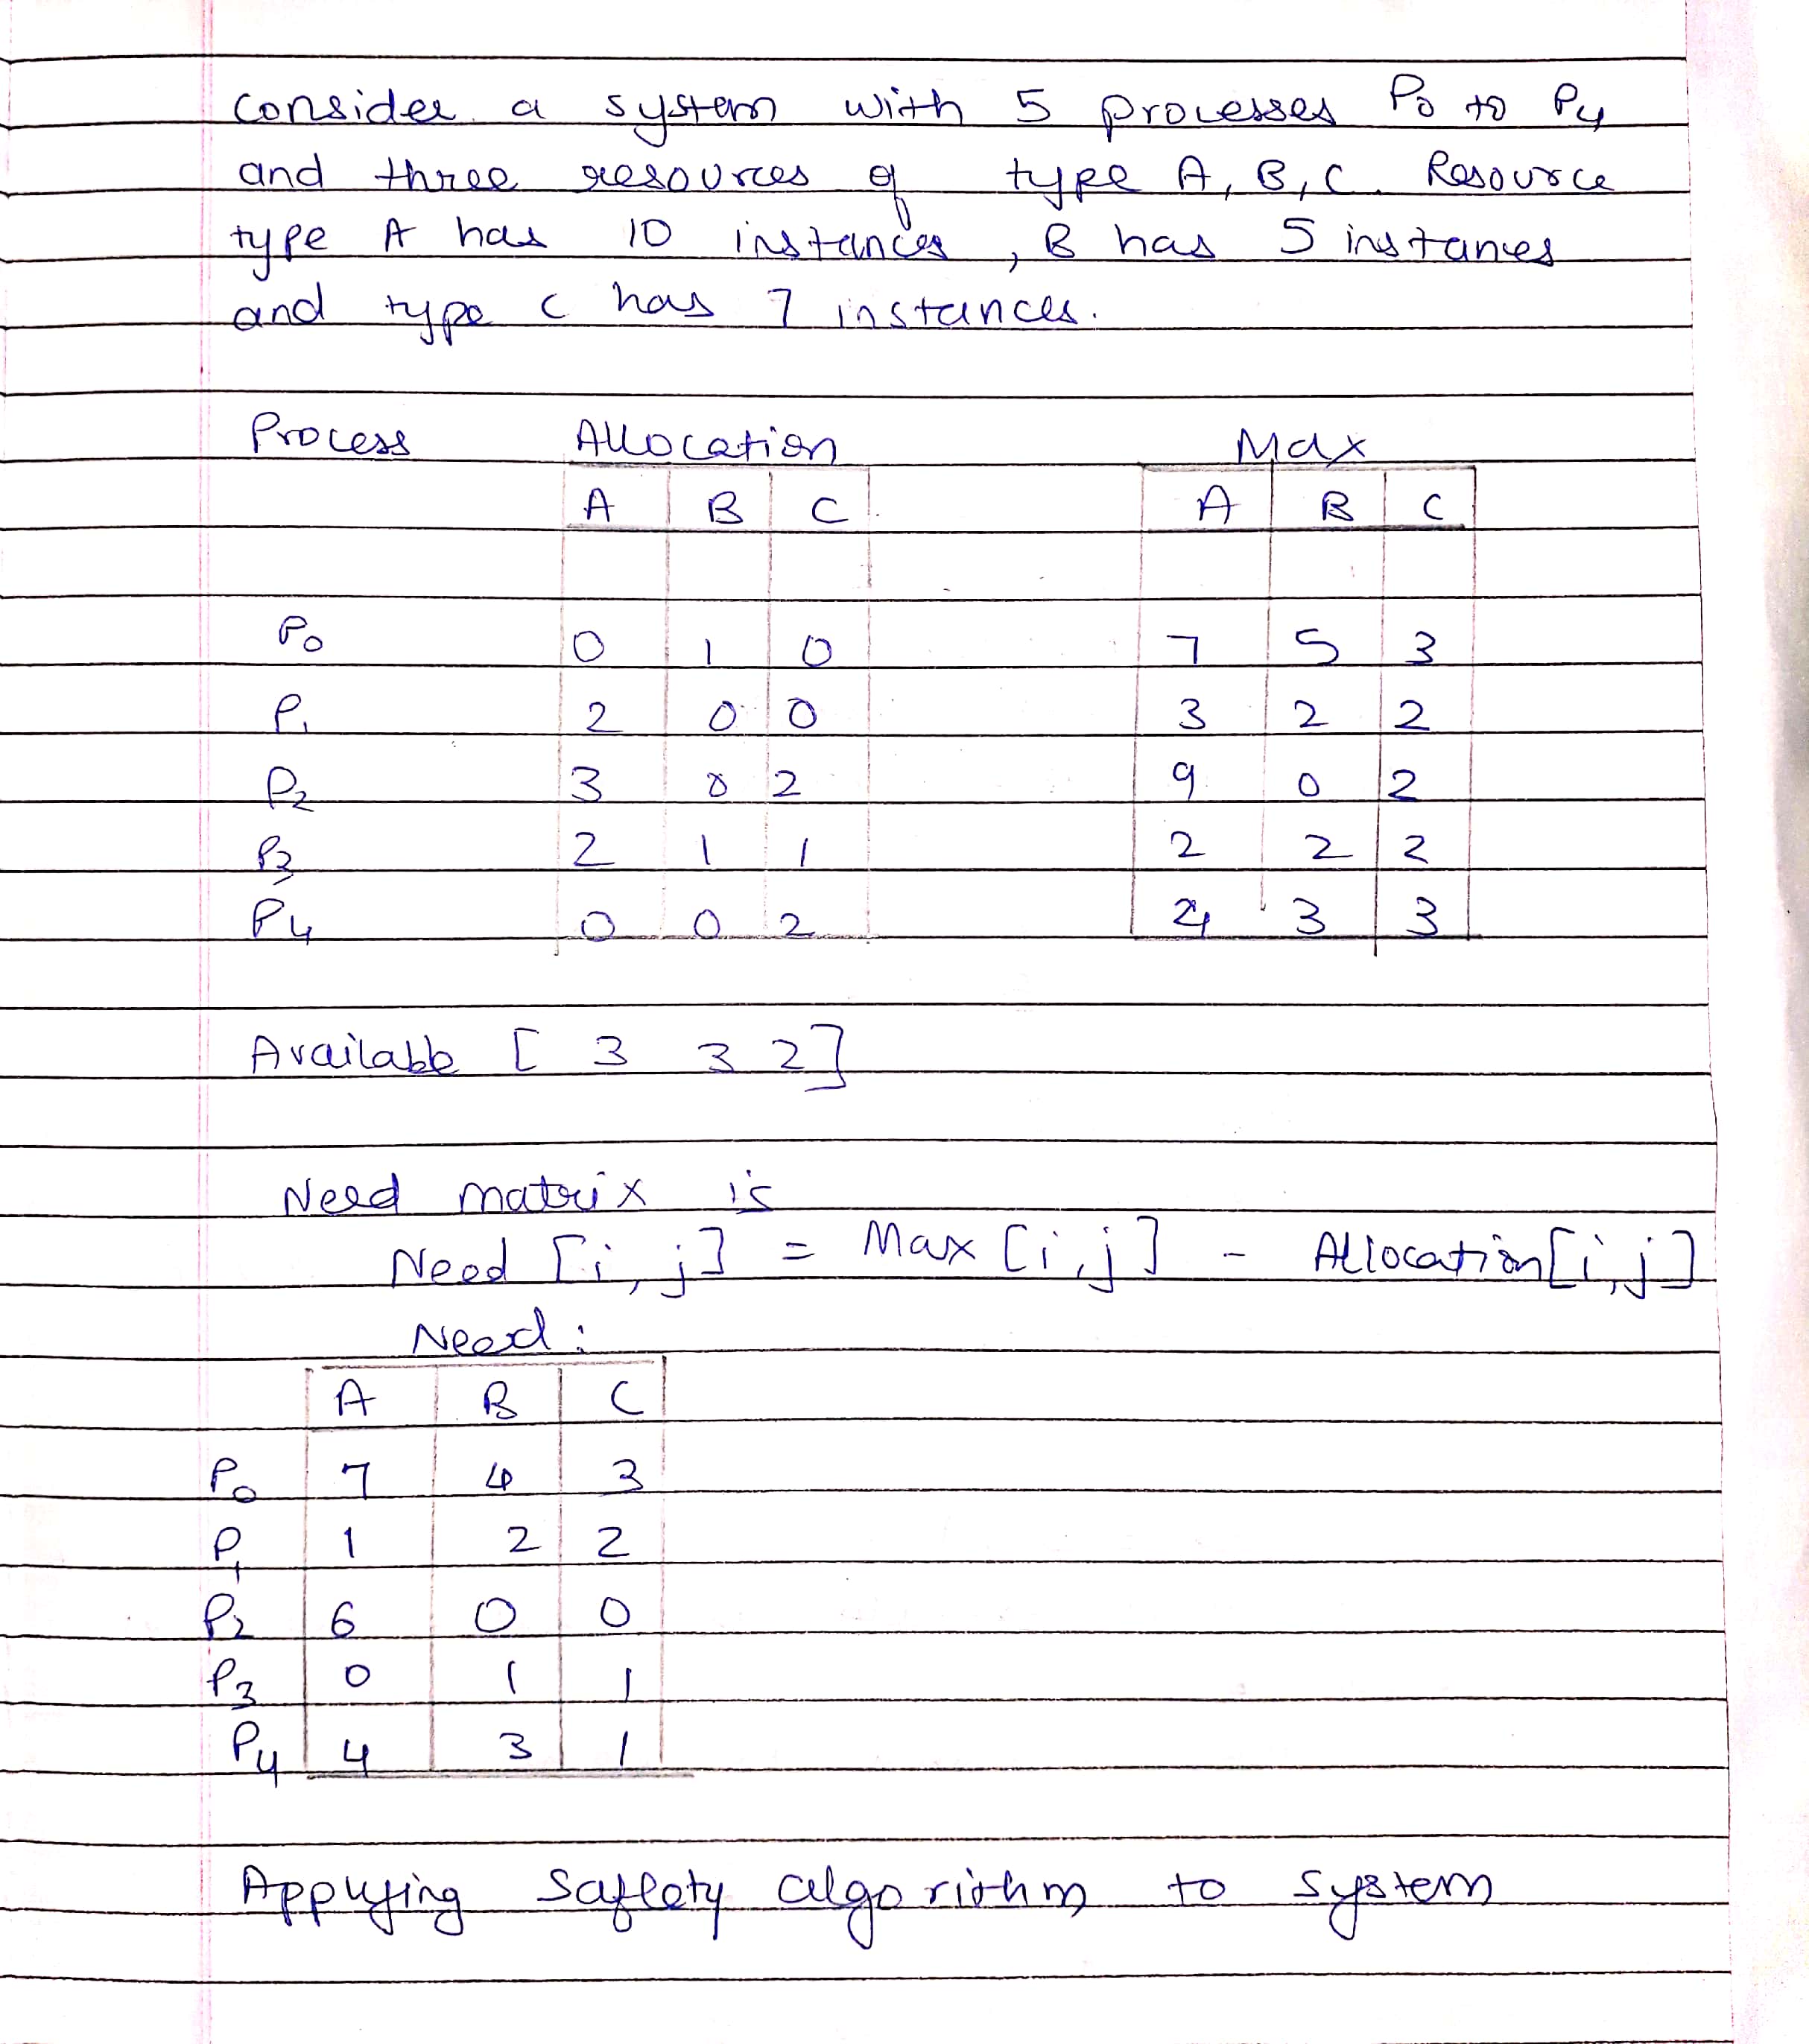 consider a system with 5 processes P0 to P4
and three resources of type A, B, C. Resource
type A has 10 instances, B has 5 instances
and type C has 7 instances.
Process Allocation Max
A B C A B C
P0 0 1 0 7 5 3
P1 2 0 0 3 2 2
P2 3 0 2 9 0 2
P3 2 1 1 2 2 2
P4 0 0 2 4 3 3
Available [ 3 3 2 ]
Need matrix is
Need [i, j] = Max [i, j] - Allocation [i, j]
Need :
A B C
P0 7 4 3
P1 1 2 2
P2 6 0 0
P3 0 1 1
P4 4 3 1
Applying saflety algorithm to system